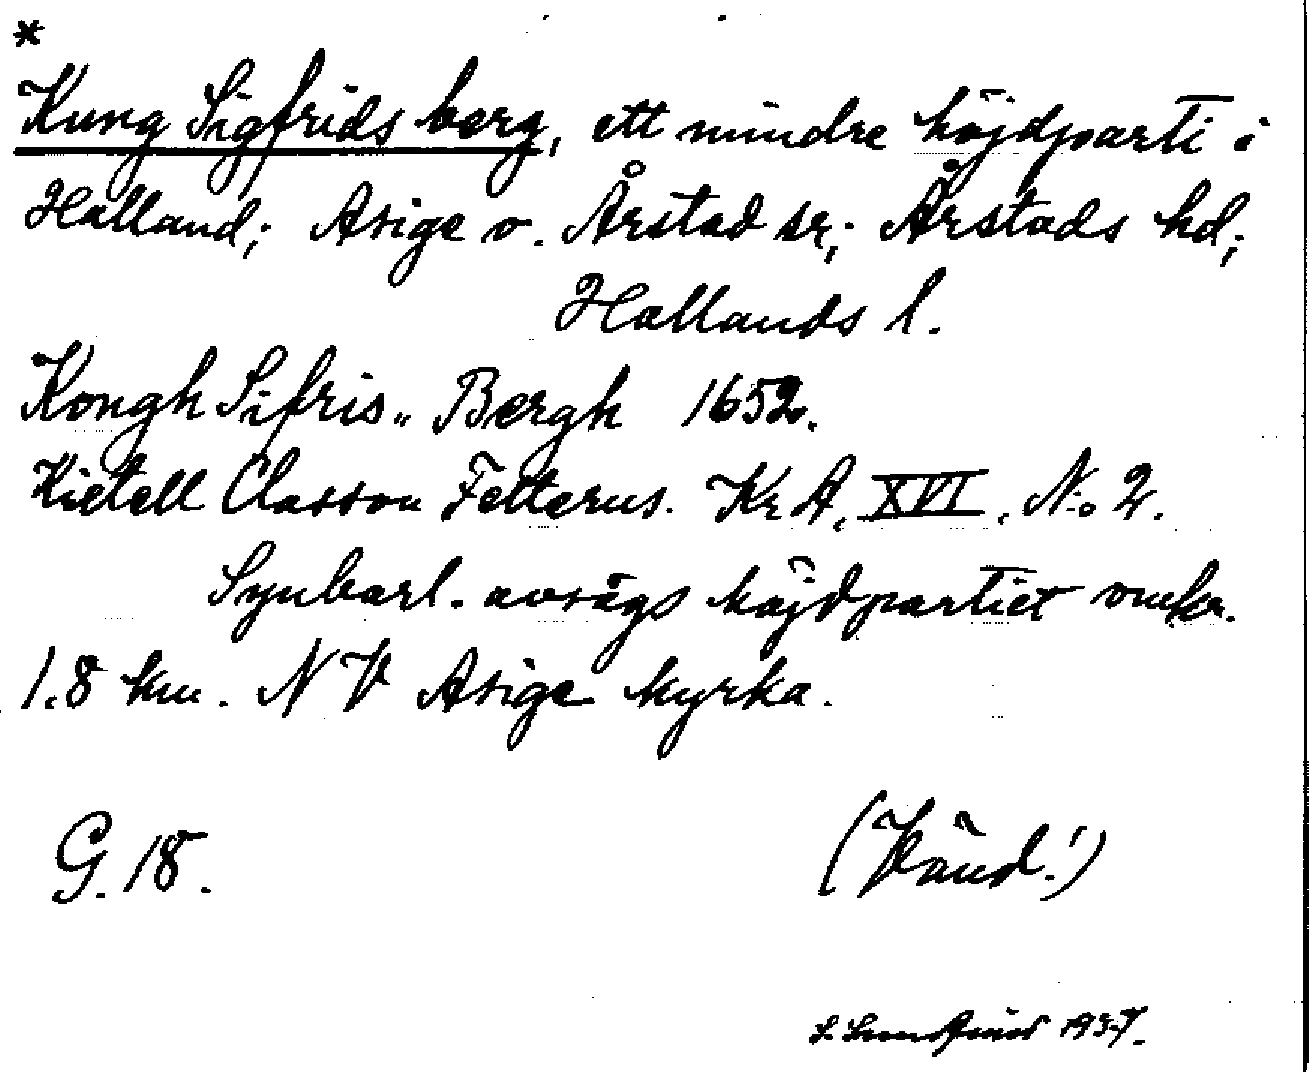 *
Kung Sigfrids berg, ett mindre höjdparti i
Halland; Asige o. Årstad sr; Årstads hd;
Hallands l.
Kongh Sifris„ Bergh 1652.
Kietell Classon Felterus. Kr A, XVI, N:o 2.
Synbarl. avsågs höjdpartiet omkr.
1.8 km. NV Asige kyrka.
G. 18.
(Vänd!)
1937.